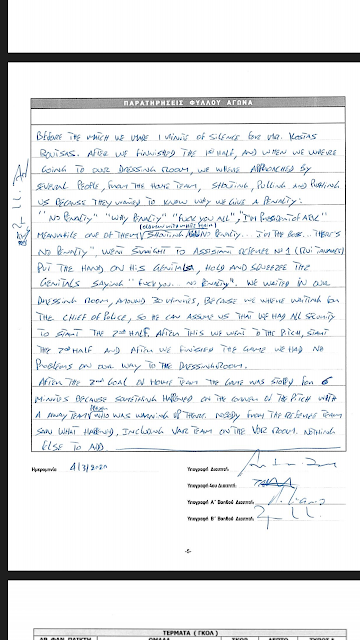 ΠΑΡΑΤΗΡΗΣΕΙΣ ΦΥΛΛΟΥ ΑΓΩΝΑ
BEFORE THE MATCH WE MAKE 1 MINUTE OF SILENCE FOR MR. KOSTAS
BOUTSAS. AFTER WE FINNISHED THE 1st HALF, AND WHEN WE WHERE
GOING TO OUR DRESSING ROOM, WE WHERE APPROACHED BY
SEVERAL PEOPLE, FROM THE HOME TEAM, SHOUTING, PULLING AND PUSHING
US BECAUSE THEY WANTED TO KNOW WHY WE GIVE A PENALTY:
"NO PENALTY" "WHY PENALTY" "FUCK YOU ALL", "I'M PRESIDENT OF
MEANWHILE ONE OF THEM, SHOUTING NO PENALTY... I'M THE BOSS... THERE'S
NO PENALTY", WENT STRAIGHT TO ASSISTANT REFEREE Nº1
PUT THE HAND ON HIS GENITALS, HOLD AND SQUEEZE THE
GENITALS SAYING "FUCK YOU... NO PENALTY". WE WAITED IN OUR
DRESSING ROOM, AROUND 30 MINUTES, BECAUSE WE WHERE WAITING FOR
THE CHIEF OF POLICE, SO HE CAN ASSUME US THAT WE HAD ALL SECURITY
TO START THE 2nd HALF. AFTER THIS WE WENT TO THE PITCH, START
THE 2nd HALF AND AFTER WE FINISHED THE GAME WE HAD NO
PROBLEMS ON OUR WAY TO THE DRESSING ROOM.
AFTER THE 2nd GOAL OF HOME TEAM THE GAME WAS STOPED FOR 6
MINUTES BECAUSE SOMETHING HAPPENED ON THE CORNER OF THE PITCH WITH
A AWAY TEAM WHO WAS WARMING UP THERE. NOBODY FROM THE REFEREE TEAM
SAW WHAT HAPPENED, INCLUDING VAR TEAM ON THE VOR ROOM. NOTHING
ELSE TO ADD
Ημερομηνία 4/3/2024 Υπογραφή Διαιτητή
Υπογραφή 4ου Διαιτητή
Υπογραφή Α' Βοηθού Διαιτητή
Υπογραφή Β' Βοηθού Διαιτητή
-5-
ΤΕΡΜΑΤΑ (ΓΚΟΛ)